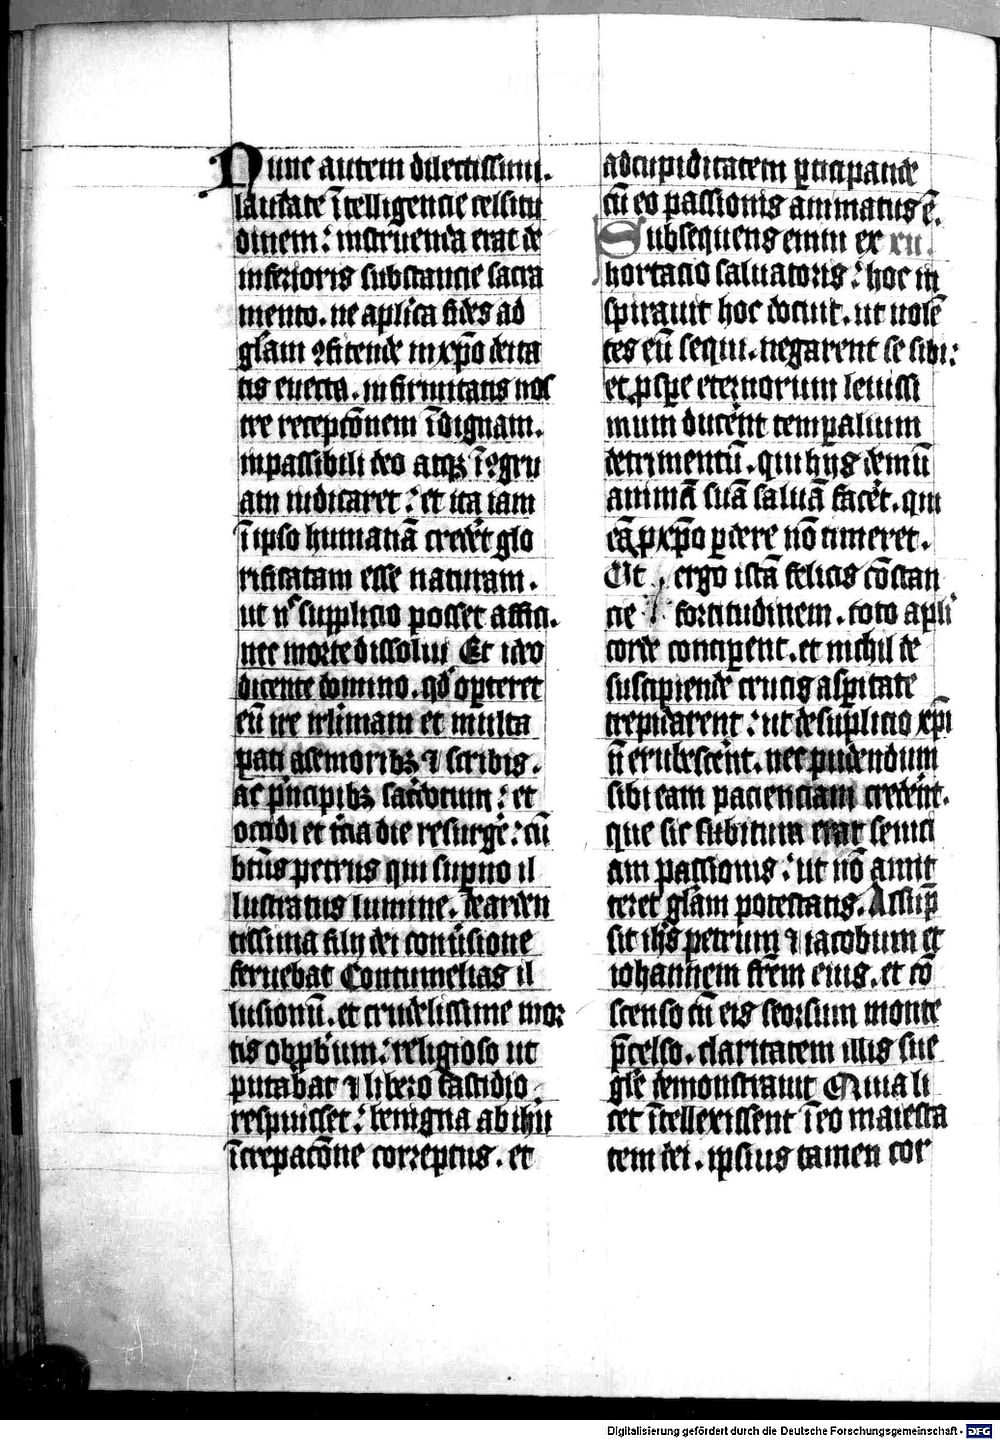 Nunc autem dilectissimi.
laudate ītelligencie celsitu
dinem: instruenda erat de
inferioris substancie sacra
mento. ne aplica fides ad
glam ꝯfitende in xp̄o deita
tis euecta. infirmitatis nos
tre recepcōnem īdignam.
inpassibili deo atqꝫ īꝯgru
am iudicaret: et ita iam
ī ipso humanā crederet glo
rificatam esse naturam.
ut nͨ supplicio posset affici.
nec morte dissolui Et ideo
dicente domino. qd̓ oꝑteret
eū ire irl̓imam et multa
pati a senioribꝫ ⁊ scribis.
ac p̓ncipibꝫ sac̓dotum: et
occidi et t̓cia die resurge̓: cū
bt̄us petrus qui suꝑno il
lustratus lumine. de arden
tissima filij dei confessione
feruebat Contumelias il
lusionū. et crudelissime mor
tis obp̓brium: religioso ut
putabat ⁊ libero fastidio
respuisset: benigna ab ihū
īcrepacōne correptus. et
ad cupiditatem ꝑticipande
cū eo passionis animatus ē.
Subsequens enim ex xii.
hortacio saluatoris: hoc in
spirauit hoc docuit. ut uolē
tes eū sequi. negarent se sibi:
et p spe eternorum leuissi
mum ducerēt tempaliium
detrimentū. qui hijs demū
animā suā saluā facet̓. qui
eā ꝓ xp̄o ꝑdere nō timeret.
Ut ergo istā felicis cōstan
cie fortitudinem. toto apli
corde conciperent. et nichil de
suscipiende crucis aspitate
trepidarent: ut de suplicio xp̄i
nͨ erubescerēt. nec pudendum
sibi eam pacienciam crederēt.
que sic subitura erat seuici
am passionis: ut nō amit
teret glam potestatis. Assūp
sit ihs̄ petrum ⁊ iacobum et
iohannem frēm eius. et cō
scenso cū eis seorsum monte
p̄celso. claritatem illis sue
gl̓e demonstrauit Quia li
cet ītellexissent ī eo maiesta
tem dei. ipsius tamen cor
Digitalisierung gefördert durch die Deutsche Forschungsgemeinschaft - DFG